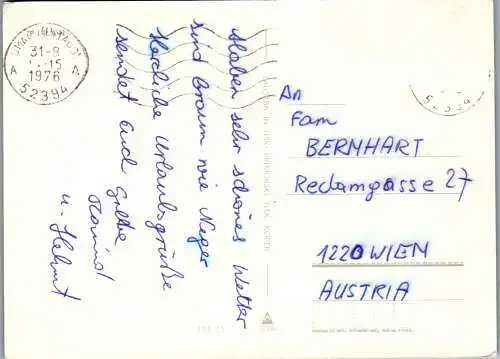 31-8
1976
52394
Haben sehr schönes Wetter
sind braun wie Neger
Herzliche Urlaubsgrüße
sendet Euch
u. Helmut
An
Fam
BERNHART
Reclamgasse 27
1220 WIEN
AUSTRIA